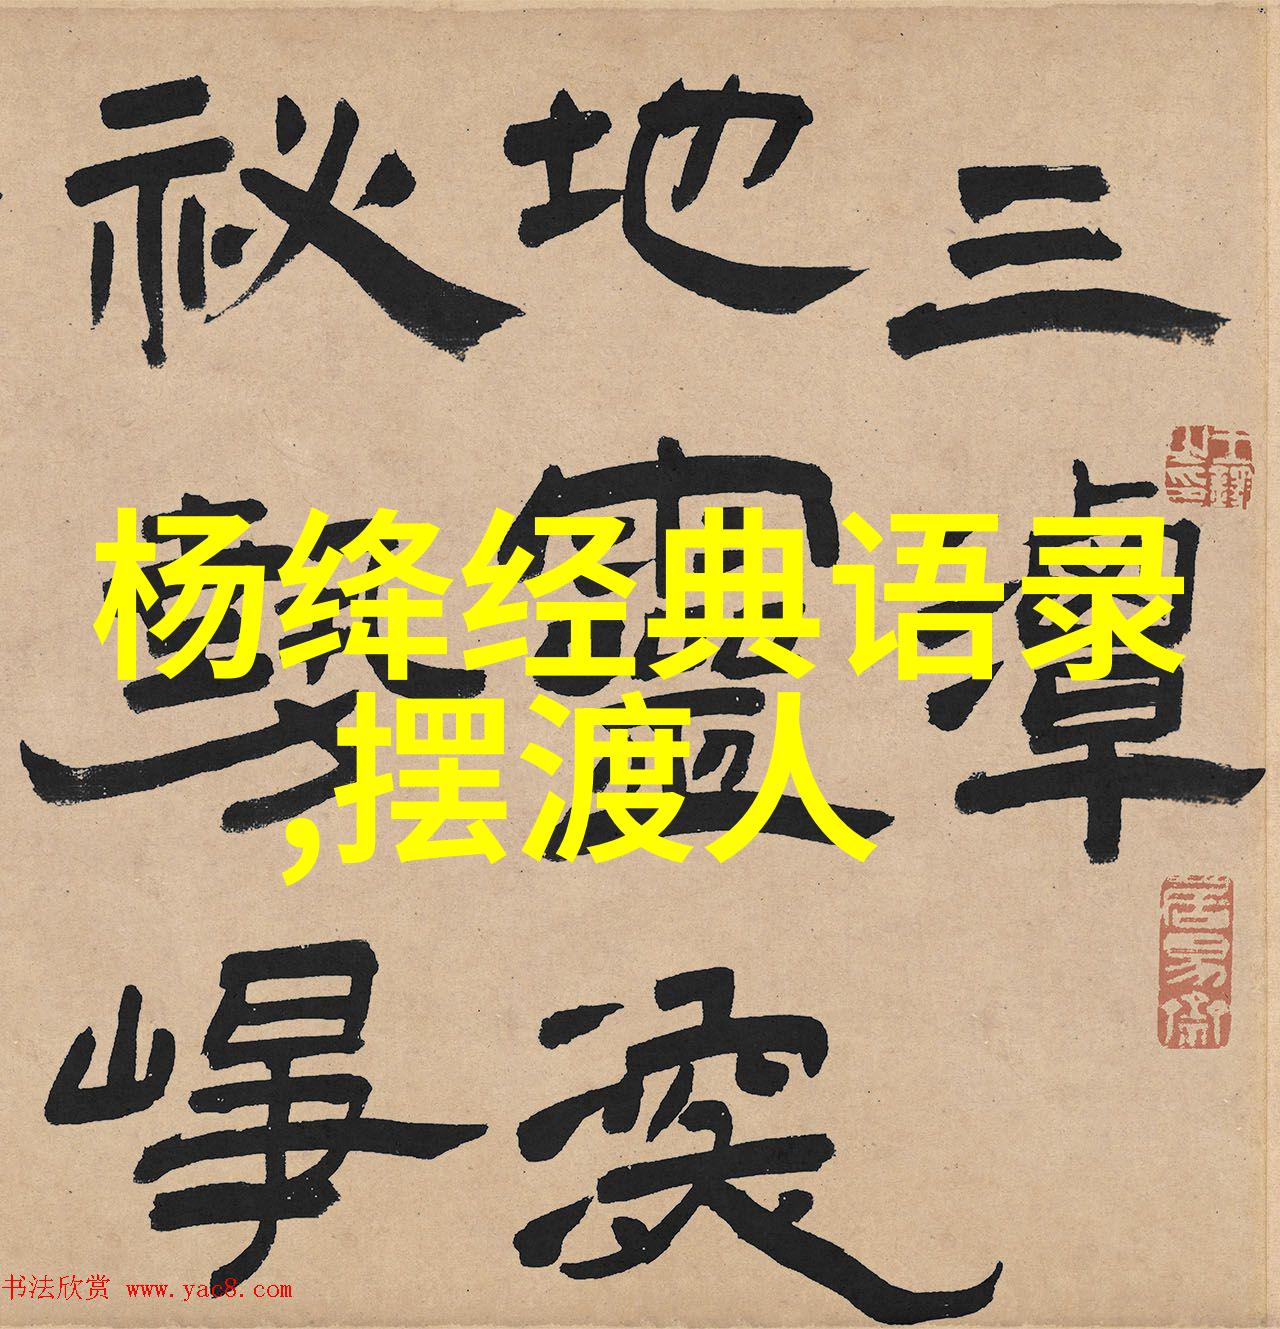 三潭
地靈
祕勢
杨绛经典语录
,摆渡人
书法欣赏 www.yac8.com